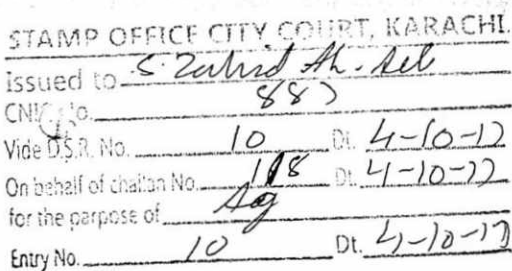 STAMP OFFICE CITY COURT, KARACHI.
Issued to S. Zahid Ah.
CNIC No. 887
Vide D.S.R. No. 10 Dt. 4-10-17
On behalf of challan No. 118 Dt. 4-10-17
for the parpose of Ag
Entry No. 10 Dt. 4-10-17